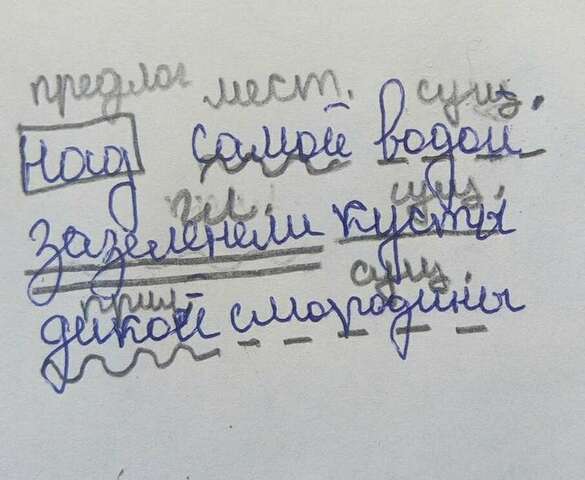 предлог мест. сущ.
над самой водой
гл. сущ.
зазеленели кусты
прил. сущ.
дикой смородины